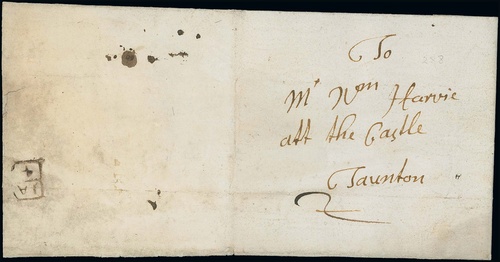 To
Mr Wm Harvie
att the Castle
Taunton
2